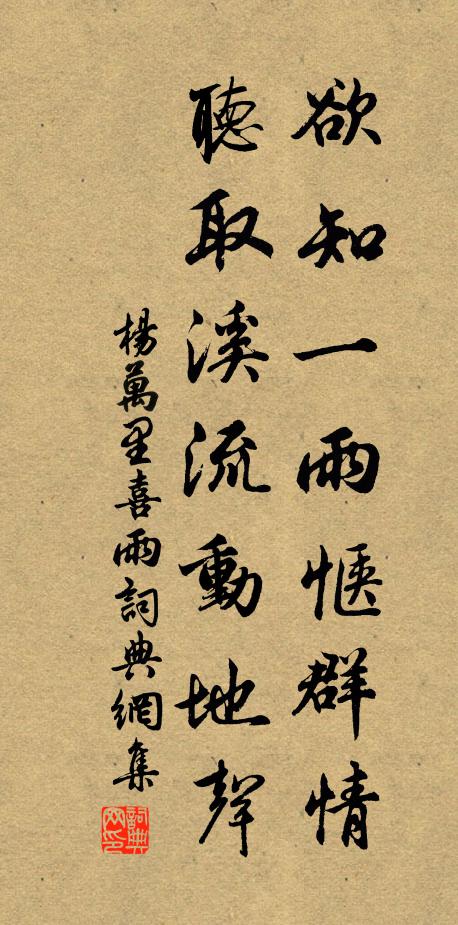 欲知一雨愜群情
聽取溪流動地聲
楊萬里喜雨詞典網集
詞典網印